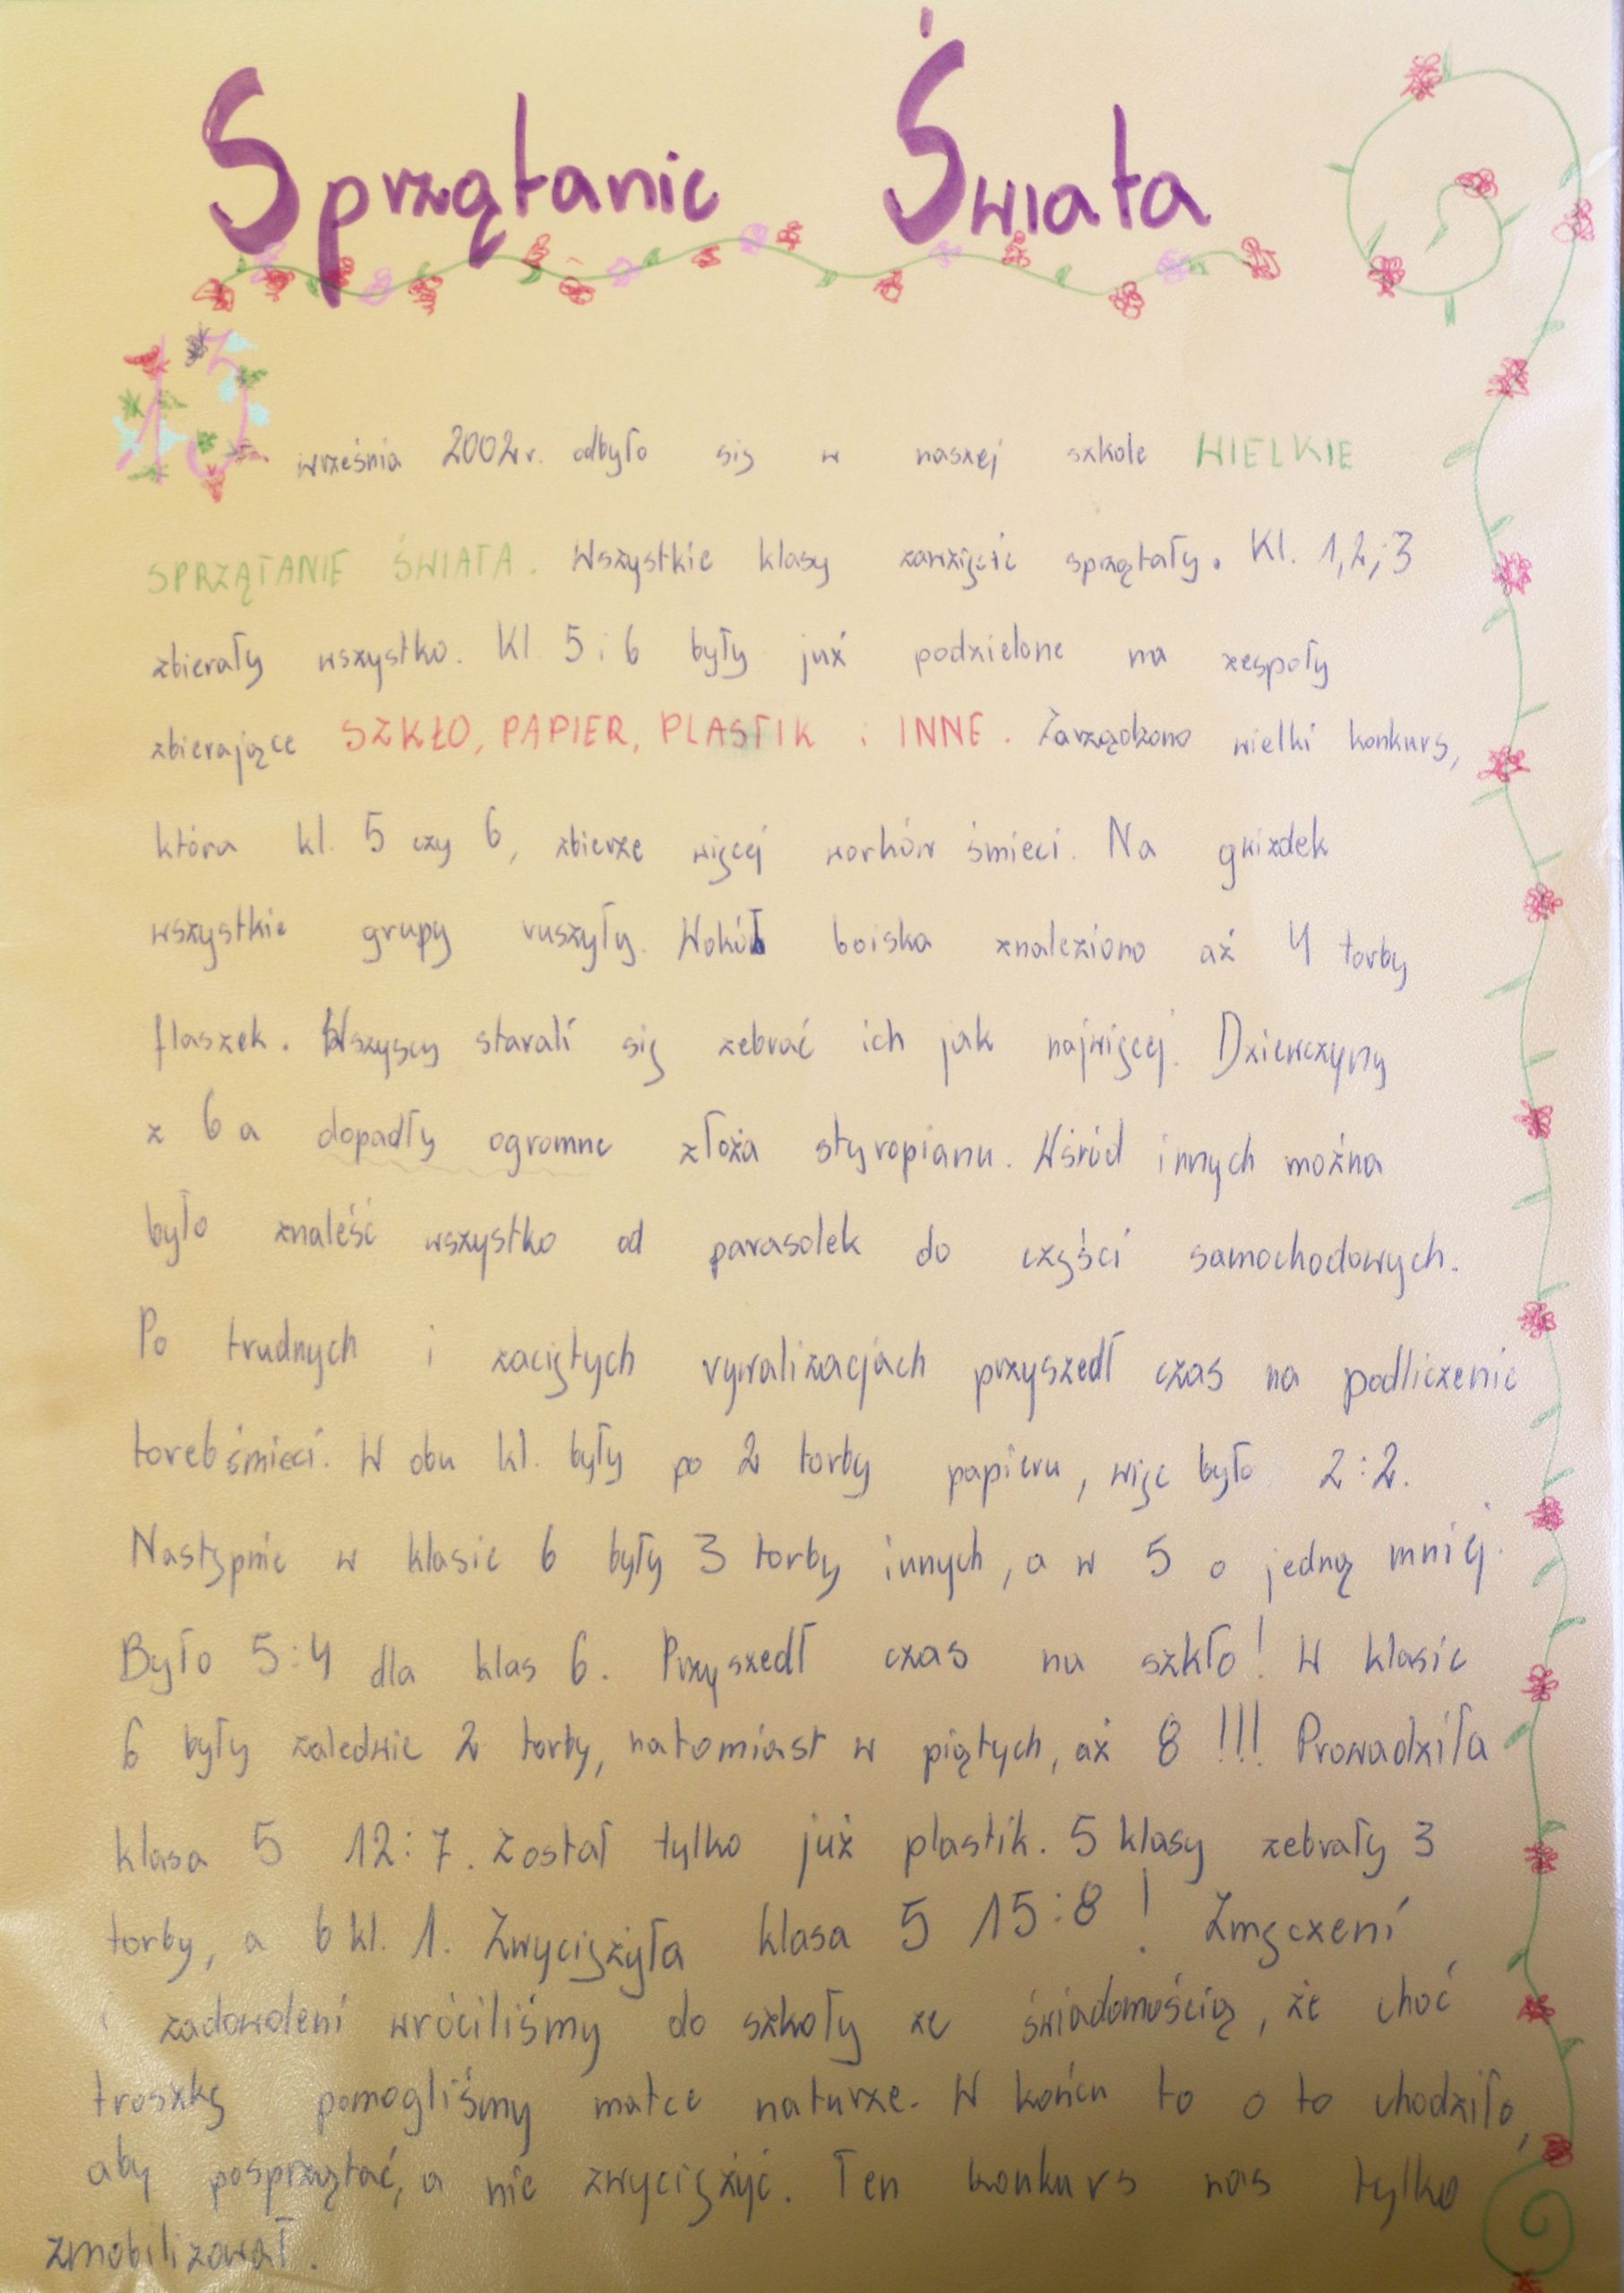 Sprzątanie Świata
13 września 2002r. odbyło się w naszej szkole WIELKIE
SPRZĄTANIE ŚWIATA. Wszystkie klasy zawzięcie sprzątały. Kl. 1,2,3
zbierały wszystko. Kl 5 i 6 były już podzielone na zespoły
zbierające SZKŁO, PAPIER, PLASTIK i INNE. Zarządzono wielki konkurs,
która kl. 5 czy 6, zbierze więcej worków śmieci. Na gwizdek
wszystkie grupy ruszyły. Wokół boiska znaleziono aż 4 torby
flaszek. Wszyscy starali się zebrać ich jak najwięcej. Dziewczyny
z 6a dopadły ogromne złoża styropianu. Wśród innych można
było znaleść wszystko od parasolek do części samochodowych.
Po trudnych i zaciętych rywalizacjach przyszedł czas na podliczenie
toreb śmieci. W obu kl. były po 2 torby papieru, więc było 2:2.
Następnie w klasie 6 były 3 torby innych, a w 5 o jedną mniej.
Było 5:4 dla klas 6. Przyszedł czas na szkło! W klasie
6 były zaledwie 2 torby, natomiast w piątych, aż 8 !!! Prowadziła
klasa 5 12:7. Został tylko już plastik. 5 klasy zebrały 3
torby, a 6 kl. 1. Zwyciężyła klasa 5 15:8 ! Zmęczeni
i zadowoleni wróciliśmy do szkoły ze świadomością, że choć
troszkę pomogliśmy matce naturze. W końcu to o to chodziło,
aby posprzątać, a nie zwyciężyć. Ten konkurs nas tylko
zmobilizował.